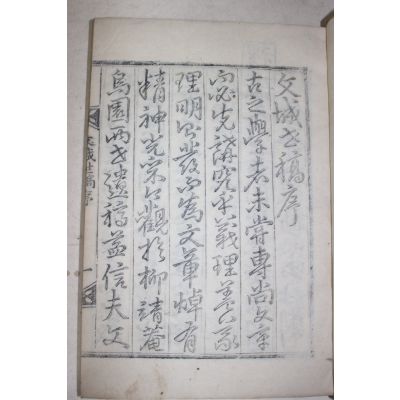 文城世稿序
古之學者未嘗專尚文章
而必先講究乎義理
理明發而爲文章焯有
精神光觀於柳菴
烏園兩世遺稿益信夫文
文城世稿序
一